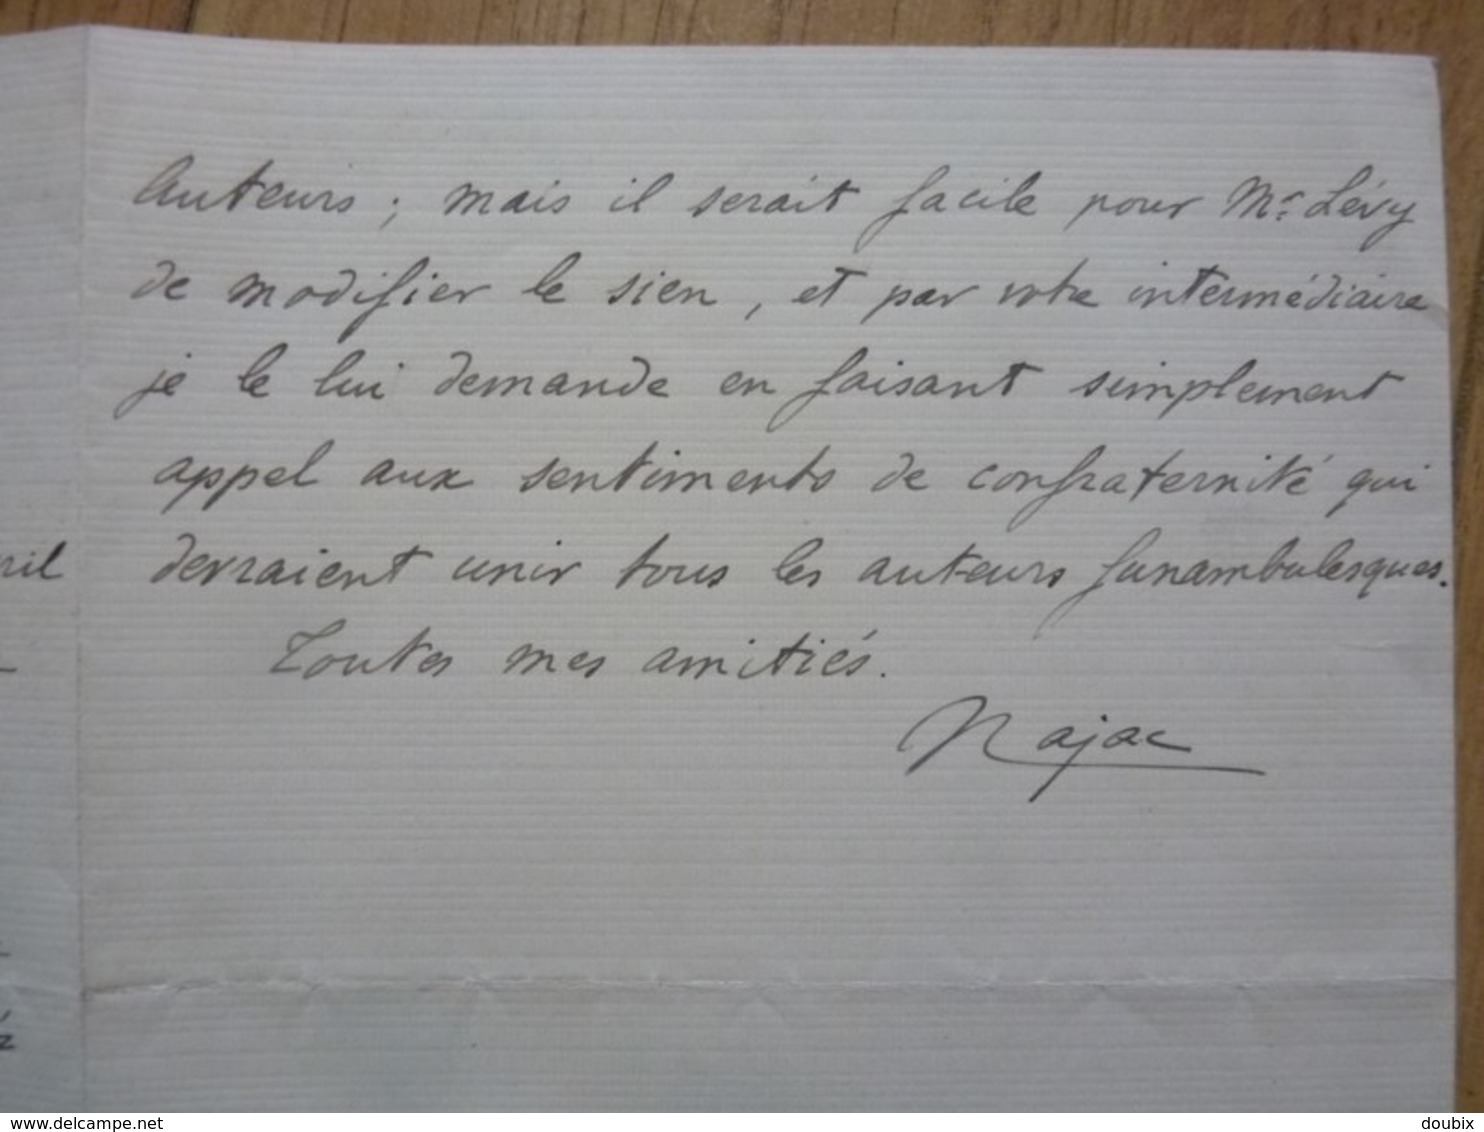 Auteurs ; mais il serait facile pour Mr Lévy
de modifier le sien, et par votre intermédiaire
je le lui demande en faisant simplement
appel aux sentiments de confraternité qui
devraient unir tous les auteurs funambulesques.
Toutes mes amitiés.
Najac
www.delcampe.net
doubix